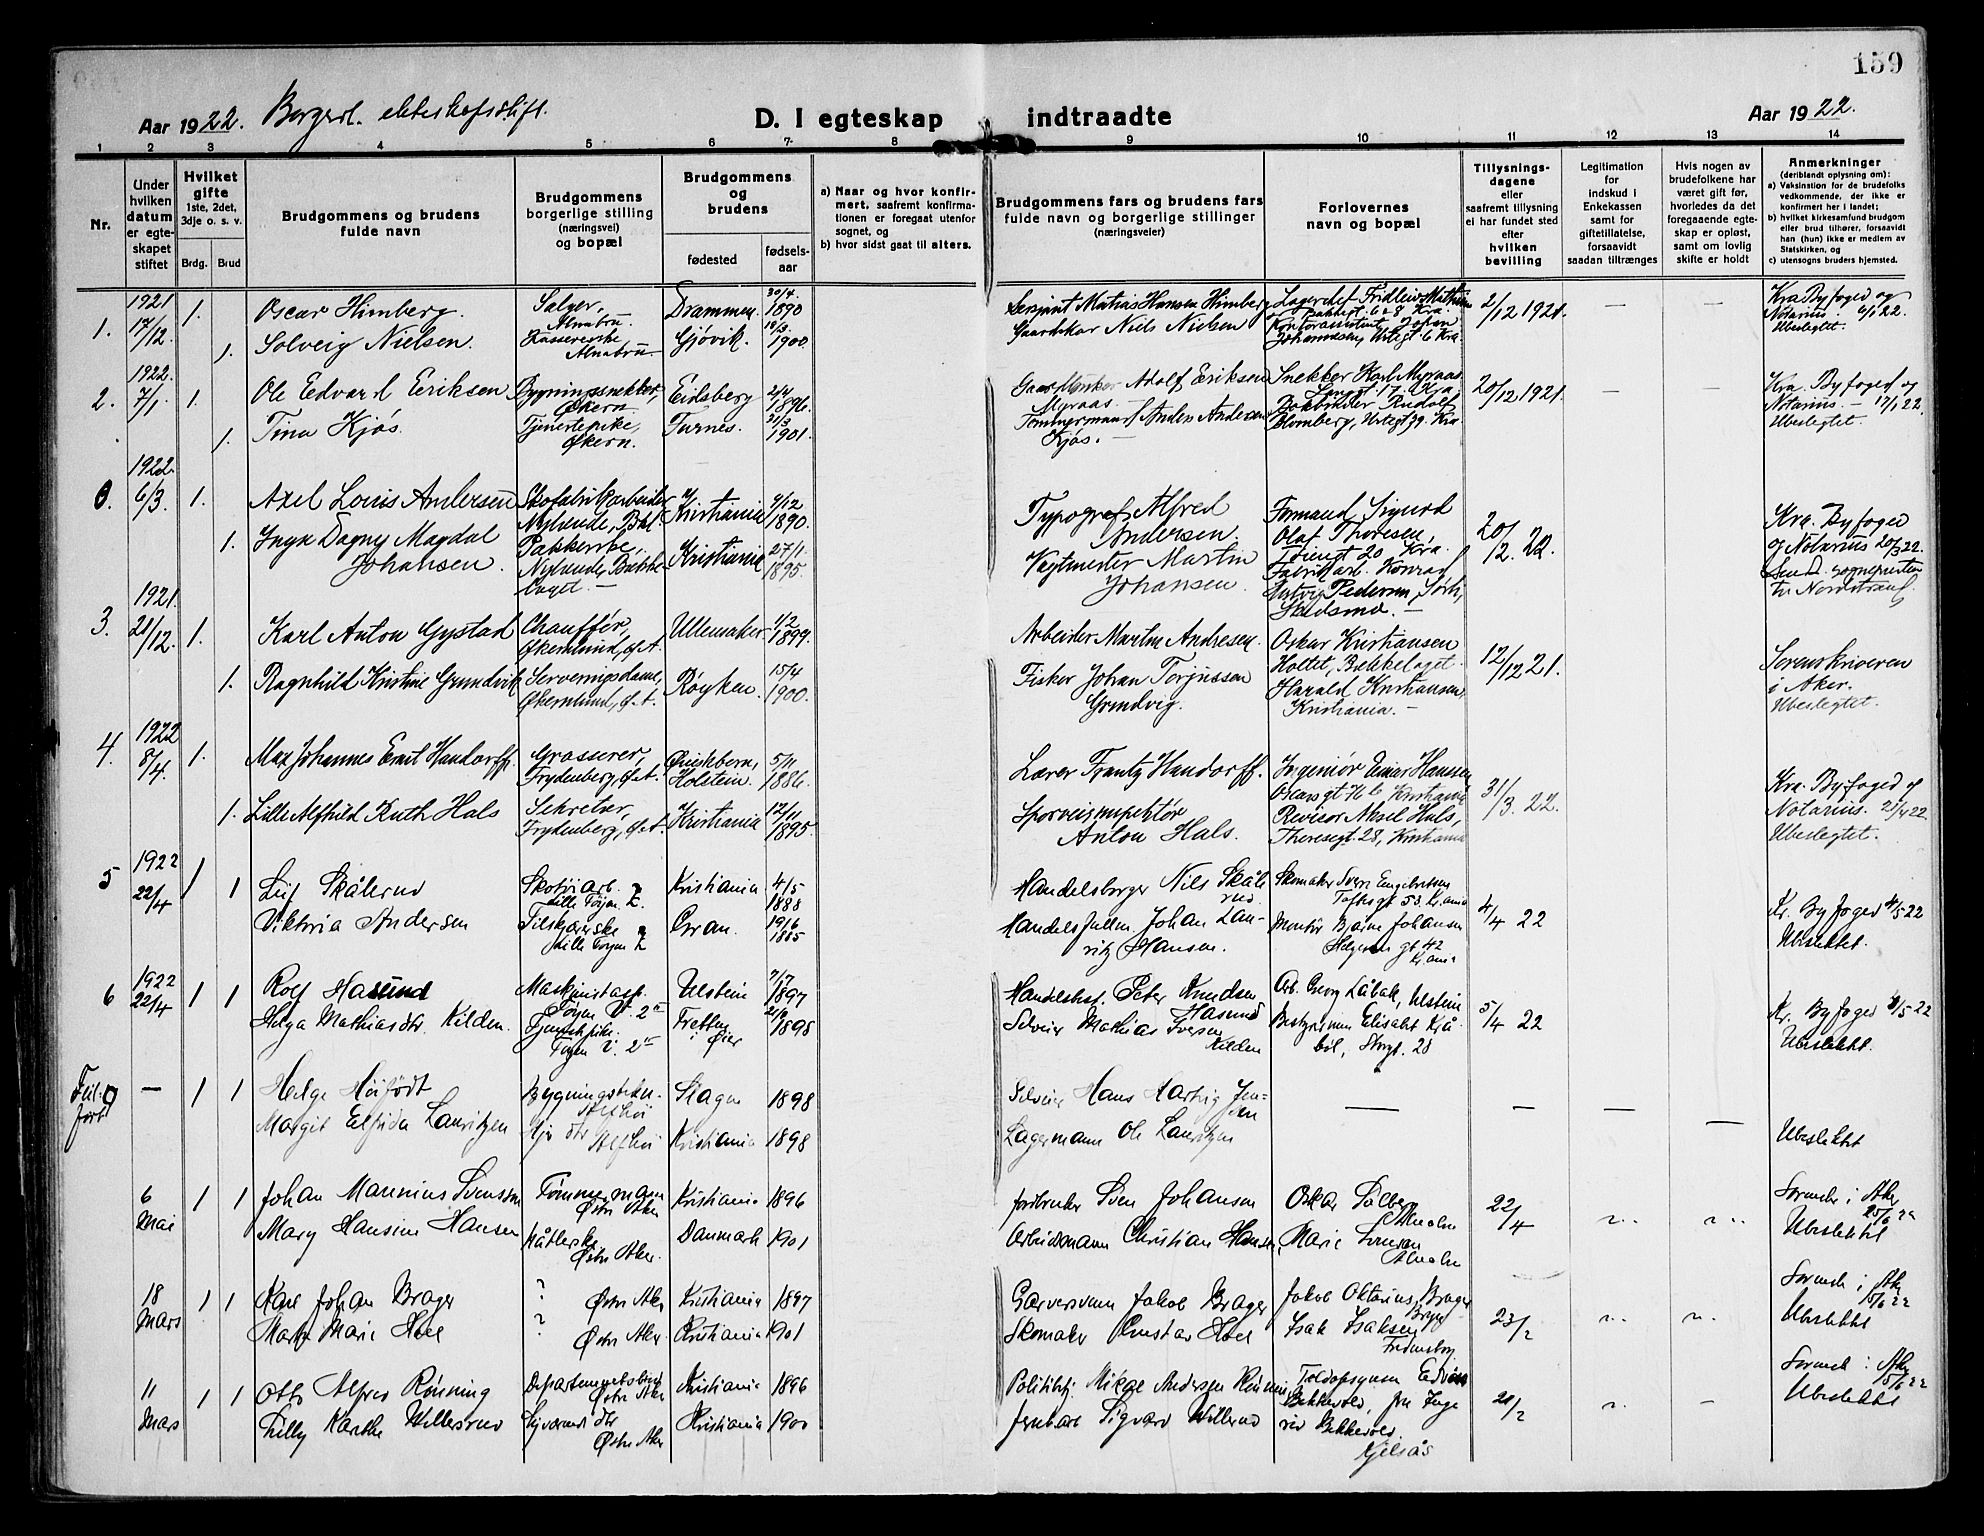 159
Aar 1922. Borgerl. ekteskapsstift.
D. I egteskap indtraadte
Aar 1922.
1 2 3 4 5 6 7 8 9 10 11 12 13 14
Nr.
Under hvilken datum er egteskapet stiftet
Hvilket gifte 1ste, 2det, 3dje o. s. v.
Brdg. Brud
Brudgommens og brudens fulde navn
Brudgommens borgerlige stilling (næringsvei) og bopæl
Brudgommens og brudens
fødested
fødselsaar
a) Naar og hvor konfirmert, saafremt konfirmationen er foregaat utenfor sognet, og
b) hvor sidst gaat til alters.
Brudgommens fars og brudens fars fulde navn og borgerlige stillinger (næringsveier)
Forlovernes navn og bopæl
Tillysningsdagene eller saafremt tillysning ei har fundet sted efter hvilken bevilling
Legitimation for indskud i Enkekassen samt for giftetillatelse, forsaavidt saadan tiltrænges
Hvis nogen av brudefolkene har været gift før, hvorledes da det foregaaende egteskap er opløst, samt om lovlig skifte er holdt
Anmerkninger (deriblandt oplysning om):
a) Vaksinstion for de brudefolks vedkommende, der ikke er konfirmert her i landet;
b) hvilket kirkesamfund brudgom eller brud tilhører, forsaavidt han (hun) ikke er medlem av Statskirken, og
c) utensogns bruders hjemsted.
1. 1921 17/12. 1. Oscar Himberg. Sælger, Alnabru. Drammen. 30/4 1890 Sersjant Matias Hansen Himberg Lagerchef Fridleiv 2/12 1921. — — Kra Byfoged og Notarius. 6/1 22.
1. Solveig Nielsen. Kassererske Alnabru Gjøvik. 1900. Gaardskar Niels Nielsen Kontorassistent Johan Johannesen, Urtegt 6 Kra. Ubeslegtet.
2. 1922. 7/1. 1. Ole Edvard Eriksen Bygningssnekker, Økern Eidsberg 1896. Adolf Eriksen Myraas. Snekker Karl Myraas 20/12 1921. — — Kra. Byfoged og Notarius — 17/1 22.
1. Tina Kjøs. Tjenestepike, Økern. Furnes. 21/3 1901. Tømmermand Anders Andersen Kjøs. — Bokbinder Rudolf Blomberg, Urtegt 39. Kra Ubeslegtet.
0. 1922 6/3. 1. Axel Louis Andersen Skofabrikarbeider Nylænde, Bkl. Kristiania 4/12 1890. Typograf Alfred Andersen. Formand Sigurd Olaf Thoresen, 20 Kra. 20/12. 22. Kra. Byfoged og Notarius 20/3 22.
1. Inga Dagny Magdal Johansen. Pakkerske, Nylænde, Bække laget. — Kristiania 27/1 1895. Vegtmester Martin Johansen. Fabrikarb. Konrad Ludvig Pedersen, Skedsmo. — Send. sogneprsten til Nordstrand.
3. 1921. 21/12. 1. Karl Anton Gystad Chauffør, Økernlund, Ø.A. Ullensaker. 1/2 1899. Arbeider Martin Andresen. Oskar Kristiansen Holtet, Bækkelaget. 12/12 21. Sorenskriveren i Aker.
1. Ragnhild Kristine Grundvik Serveringsdame, Økernlund, Ø.A. Røyken. 15/4 1900. Fisker Johan Torjussen Grundvig. Harald Kristiansen, Kristiania. — Ubeslegtet.
4. 1922 8/4. 1. Max Johannes Ernst Handorff. Grosserer, Frydenberg, Ø.A. Holstein. 5/11 1886. Lærer Frantz Handorff. Ingeniør Einar Hanssen Oscars gt 76 b Kristiania 31/3. 22. Kra. Byfoged og Notarius. 21/4 22
1. Lille Alfhild Ruth Hals Sekretær, Frydenberg, Ø.A. Kristiania 12/11 1895. Sporveisinspektør Anton Hals. Revisor Aksel Hals, Theresegt. 28, Kristiania Ubeslegtet.
5 1922 22/4 1 1 Leif Skålerud Skotøiarb. Lille Tøyen Kristiania 4/5 1888 Handelsborger Nils Skålerud Skomaker Sven Engebretsen Toftesgt 53. Kr.ania 4/4 22 Kr. Byfoged 4/5 22
Viktoria Andersen Tilskjærerske Lille Tøyen Gran. 1885 Handelsfullm. Johan Lauritz Hansen. Montør Bjarne Johansen Helgesens gt 42 Kr.ania Ubeslektet.
6 1922 22/4 1 1 Rolf Hasund Maskinistass. Tøyen Ulstein 7/7 1897 Handelsbest. Peter Knudsen Hasund Arb. Georg Låbak, Ulstein 5/4 22 Kr. Byfoged 4/5 22
Helga Mathiasdtr Kilden. Tjenestepike Tøyen Fretten Øier 1898 Selveier Mathias Iversen Kilden Bestyrerinne Elisabt Kråbøl, Storgt. 28 Ubeslektet.
Feil ført 0 — 1 1 Helge Høifødt Bygningstekn. Skagen 1898 Selveier Hans Hartvig Jensen — — —
Margit Elfrida Lauritzen Hjv dtr Kristiania 1898 Lagermann Ole Lauritzen — Ubeslektet
6 Mai 1 1 Johan Marinius Svensson Tømmermann Østre Aker Kristiania 1896 Jordbruker Sven Johansen Oskar Sølberg 22/4 Sorensk i Aker 25/6 22
Mary Hansine Hansen Østre Aker. Danmark 1901 Arbeidsmann Christian Hansen Marie Ubeslektet
18 Mars 1 1 Karl Johan Brager ? Østre Aker Kristiania 1897 Garversvenn Jakob Brager Jakob Oktavius Brager 23/2 Sorensk i Ak 5/6 22
Marie Hoel ? Østre Aker Kristiania 1901 Skomaker Gustav Hoel Isak Isaksen Fredensborg Ubeslektet
11 Mars 1 1 Otto Alfred Rønning Departementsbud Østre Aker Kristiania 1896 Politibtj. Mikael Andersen Rønning Toldopsynsm Edvin Bekkevold, 21/2 — Sorensk i Ak 5/6 22
Lilly Kaethe Willerud dtr Østre Aker Kristiania 1900 Jernbarb. Sigvard Willerud fru Ingerid Bekkevold. Kjelsås Ubeslektet